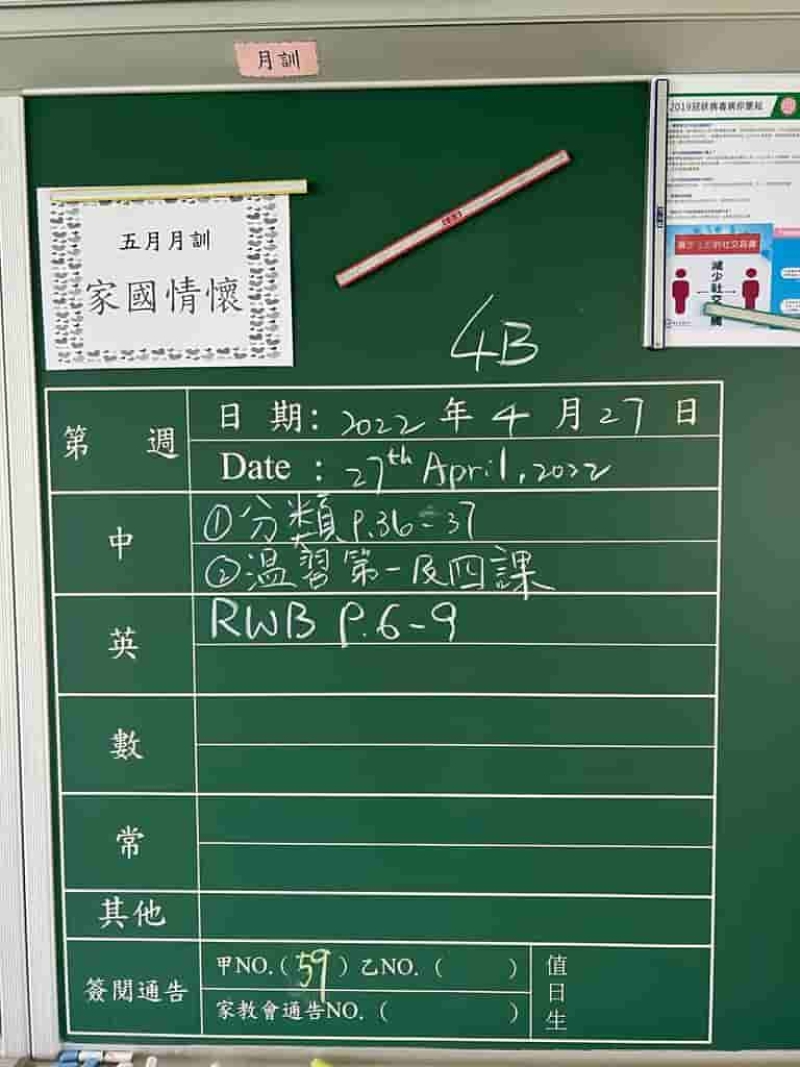 月訓
2019冠狀病毒病
五月月訓
家國情懷
減少社交
4B
第 週
日 期: 2022 年 4 月 27 日
Date : 27th April, 2022
中
①分類 P.36-37
②溫習第一及四課
英
RWB P.6-9
數
常
其他
簽閱通告
甲NO.(59) 乙NO. ( )
家教會通告NO. ( )
值日生